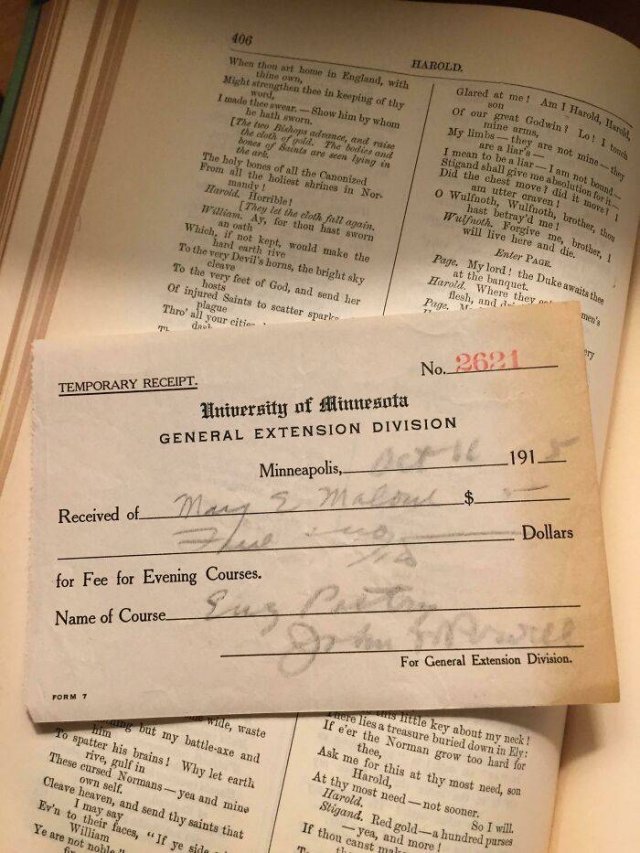 406
HAROLD.
When thou art home in England, with
thine own,
Might strengthen thee in keeping of thy
word,
I made thee swear. — Show him by whom
he hath sworn.
[The two Bishops advance, and raise
the cloth of gold. The bodies and
bones of Saints are seen lying in
the ark.
The holy bones of all the Canonized
From all the holiest shrines in Nor-
mandy!
Harold. Horrible!
[They let the cloth fall again.
William. Ay, for thou hast sworn
an oath
Which, if not kept, would make the
hard earth rive
To the very Devil's horns, the bright sky
cleave
To the very feet of God, and send her
hosts
Of injured Saints to scatter sparks
plague
Thro' all your cities
dash
Glared at me! Am I Harold, Harold,
son
Of our great Godwin? Lo! I touch
mine arms,
My limbs — they are not mine — they
are a liar's —
I mean to be a liar — I am not bound —
Stigand shall give me absolution for it —
Did the chest move? did it move? I
am utter craven!
O Wulfnoth, Wulfnoth, brother, thou
hast betray'd me!
Wulfnoth. Forgive me, brother, I
will live here and die.
Enter PAGE.
Page. My lord! the Duke awaits thee
at the banquet.
Harold. Where they men's
flesh, and
Page.
TEMPORARY RECEIPT.
No. 2621
University of Minnesota
GENERAL EXTENSION DIVISION
Minneapolis, Oct 1915
Received of Mary E Malone $
Five Dollars
for Fee for Evening Courses.
Name of Course Eng
John
For General Extension Division.
FORM 7
but my battle-axe and
him
To spatter his brains! Why let earth
rive, gulf in
These cursed Normans — yea and mine
own self.
Cleave heaven, and send thy saints that
I may say
Ev'n to their faces, "If ye side
William
Ye are not noble."
wide, waste
this little key about my neck!
There lies a treasure buried down in Ely:
If e'er the Norman grow too hard for
thee,
Ask me for this at thy most need, son
Harold,
At thy most need — not sooner.
Harold. So I will.
Stigand. Red gold — a hundred purses
— yea, and more!
If thou canst make